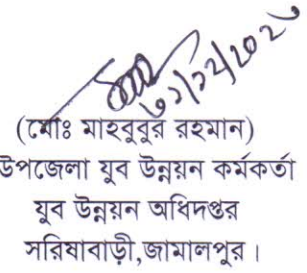 ৩১/১২/২০২
(মোঃ মাহবুবুর রহমান)
উপজেলা যুব উন্নয়ন কর্মকর্তা
যুব উন্নয়ন অধিদপ্তর
সরিষাবাড়ী,জামালপুর।